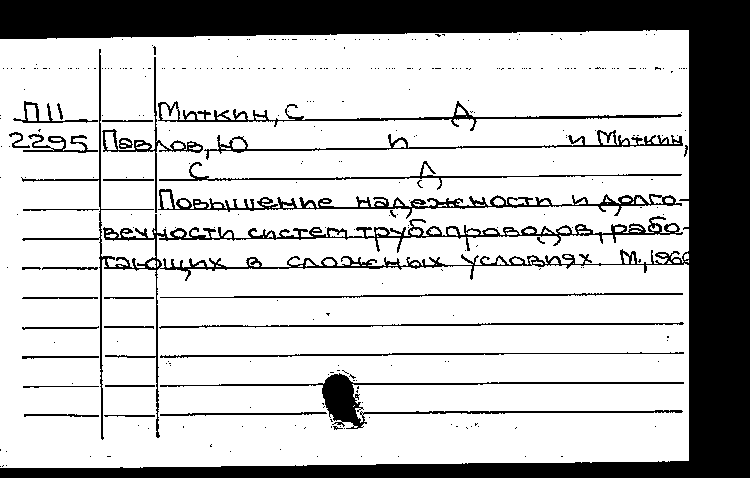 П11 Миткин, С Д
2295 Павлов, Ю П и Миткин,
С Д
Повышение надежности и долго-
вечности систем трубопроводов, рабо-
тающих в сложных условиях. М.,